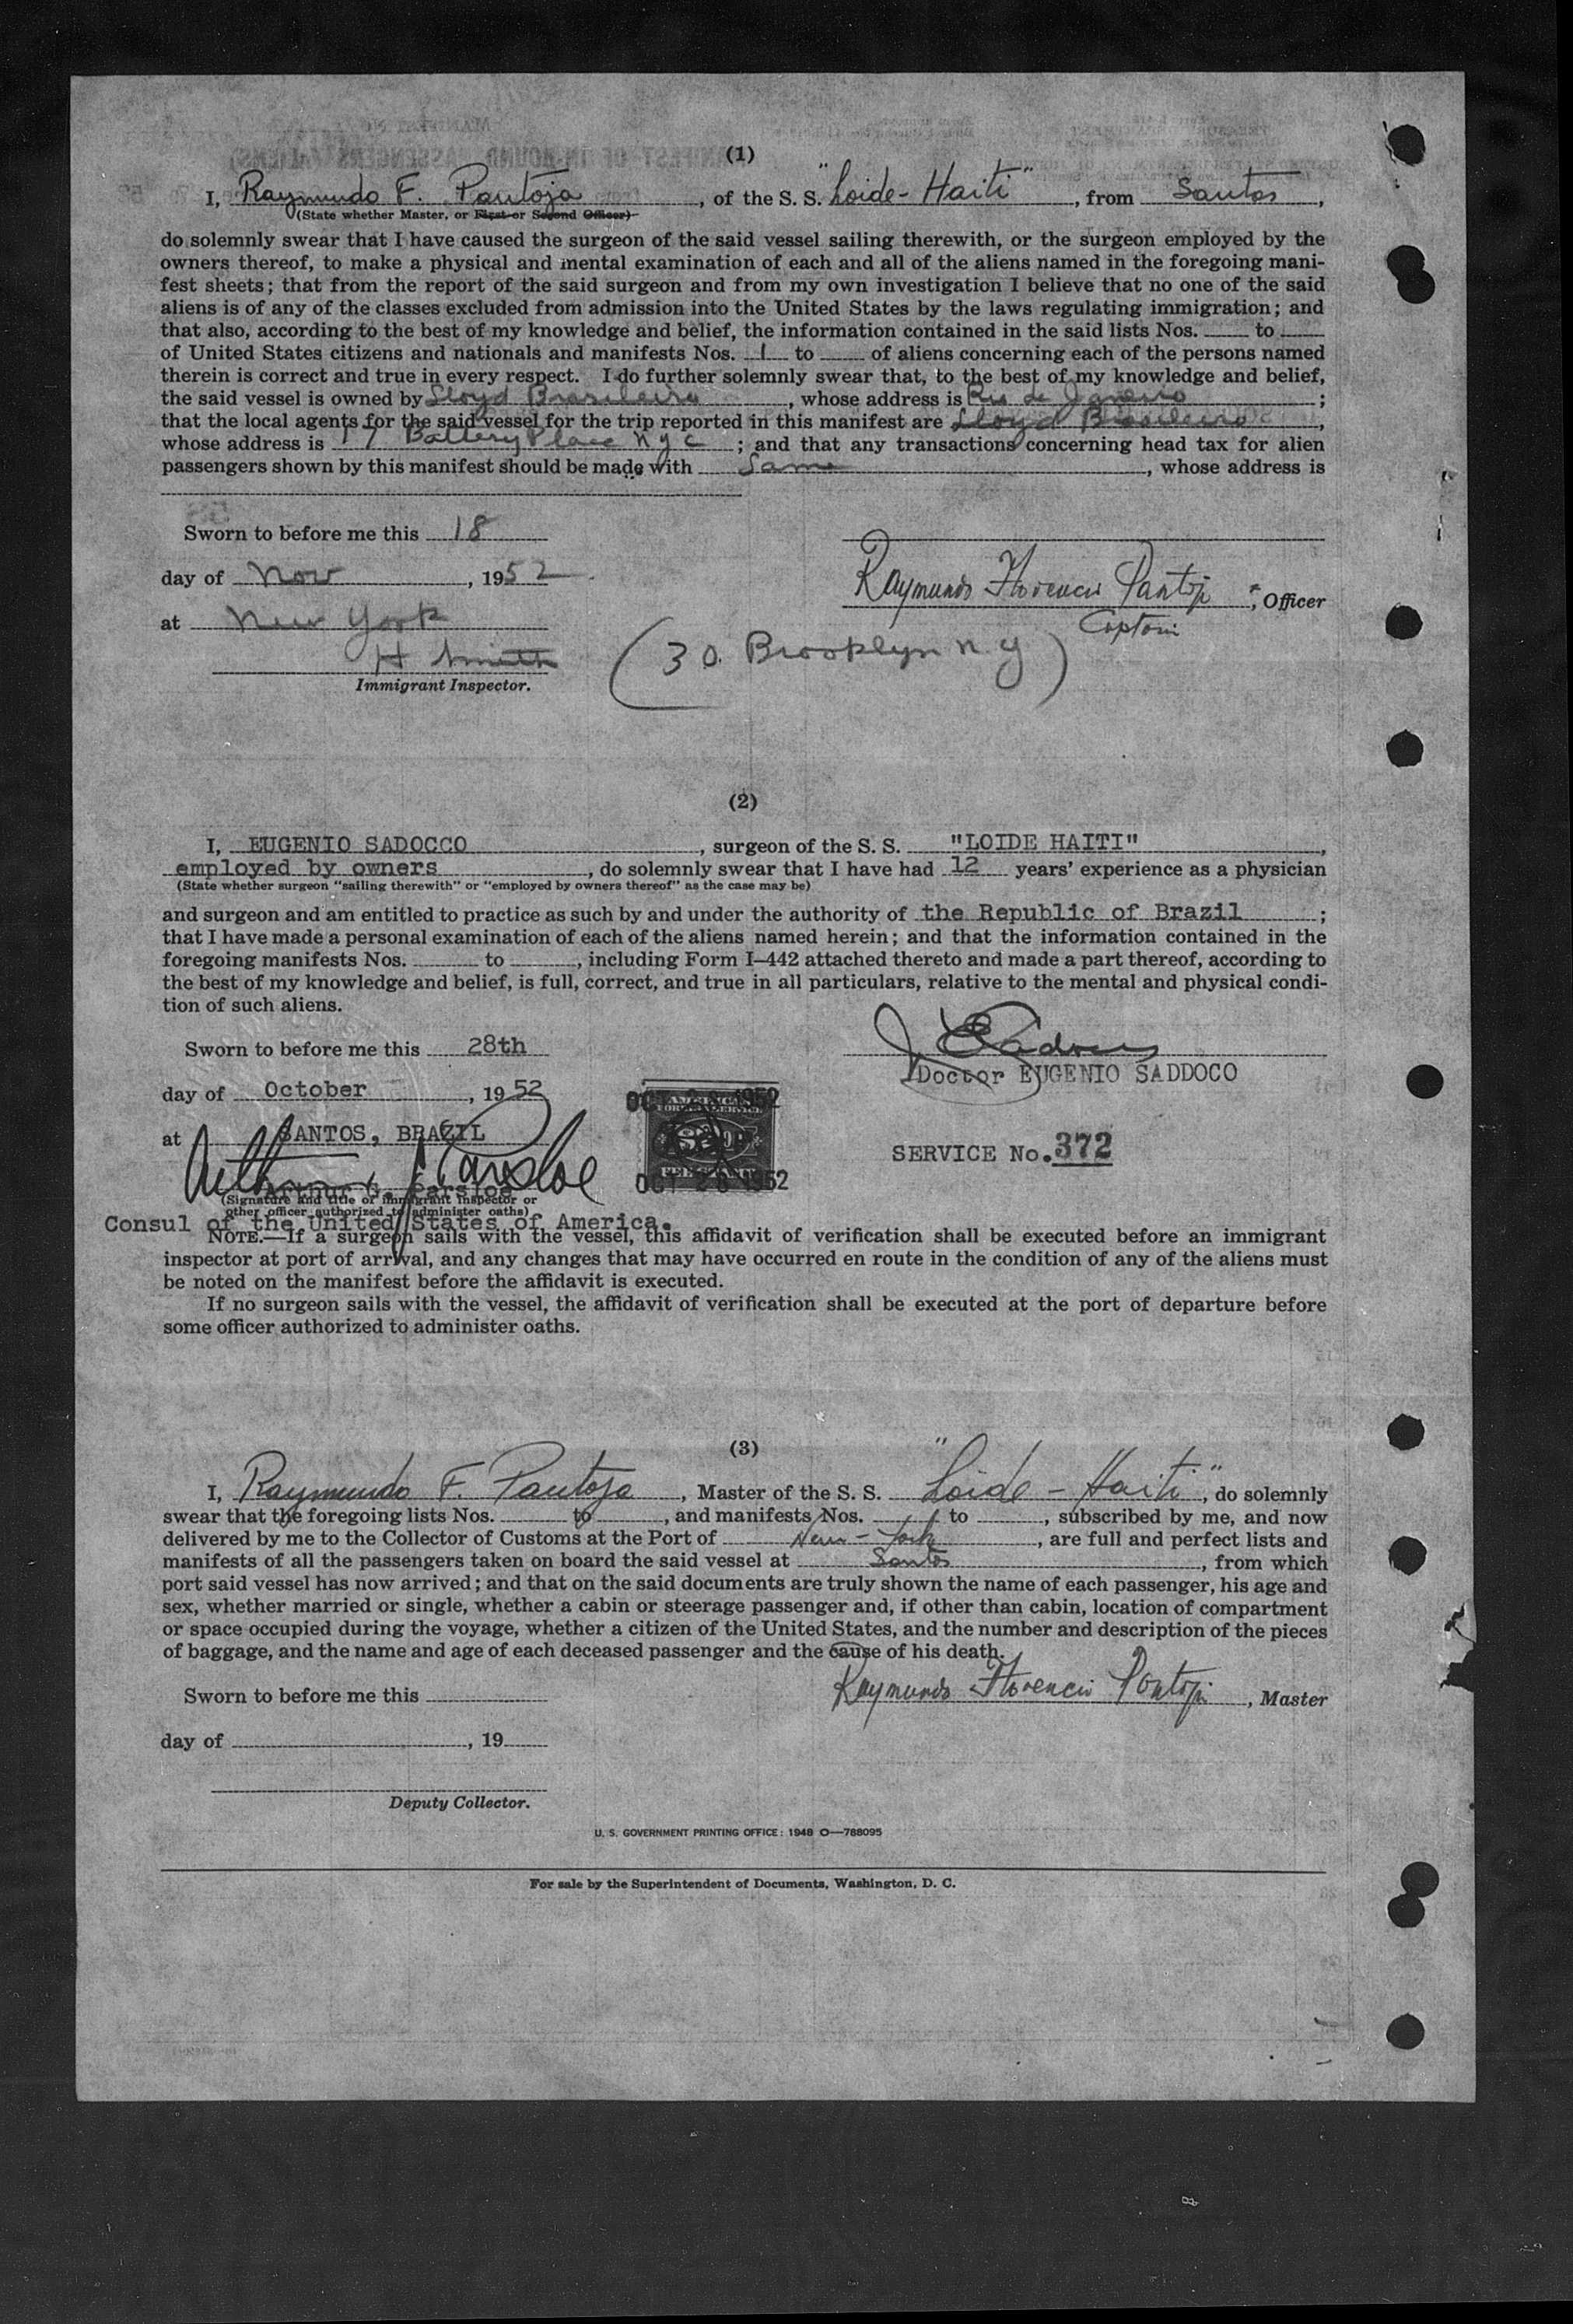 (1)
I, Raymundo F. Pantoja, of the S. S. "Loide-Haiti", from Santos,
(State whether Master, or First or Second Officer)
do solemnly swear that I have caused the surgeon of the said vessel sailing therewith, or the surgeon employed by the
owners thereof, to make a physical and mental examination of each and all of the aliens named in the foregoing mani-
fest sheets; that from the report of the said surgeon and from my own investigation I believe that no one of the said
aliens is of any of the classes excluded from admission into the United States by the laws regulating immigration; and
that also, according to the best of my knowledge and belief, the information contained in the said lists Nos. to
of United States citizens and nationals and manifests Nos. 1 to of aliens concerning each of the persons named
therein is correct and true in every respect. I do further solemnly swear that, to the best of my knowledge and belief,
the said vessel is owned by Lloyd Brasileiro, whose address is Rio de Janeiro;
that the local agents for the said vessel for the trip reported in this manifest are Lloyd Brasileiro,
whose address is 17 Battery Place N Y C; and that any transactions concerning head tax for alien
passengers shown by this manifest should be made with Same, whose address is
Sworn to before me this 18
day of Nov, 1952
Raymundo Florencio Pantoja, Officer
at New York
Captain
H Smith
(30. Brooklyn N. Y)
Immigrant Inspector.
(2)
I, EUGENIO SADOCCO, surgeon of the S. S. "LOIDE HAITI",
employed by owners, do solemnly swear that I have had 12 years' experience as a physician
(State whether surgeon "sailing therewith" or "employed by owners thereof" as the case may be)
and surgeon and am entitled to practice as such by and under the authority of the Republic of Brazil;
that I have made a personal examination of each of the aliens named herein; and that the information contained in the
foregoing manifests Nos. to, including Form I-442 attached thereto and made a part thereof, according to
the best of my knowledge and belief, is full, correct, and true in all particulars, relative to the mental and physical condi-
tion of such aliens.
Sworn to before me this 28th
Doctor EUGENIO SADDOCO
day of October, 1952
OCT 28 1952
AMERICAN
FOREIGN SERVICE
FEE STAMP
OCT 28 1952
at SANTOS, BRAZIL
SERVICE No. 372
Arthur G. Parsloe
Arthur G. Parsloe
(Signature and title of immigrant inspector or
other officer authorized to administer oaths)
Consul of the United States of America.
NOTE.—If a surgeon sails with the vessel, this affidavit of verification shall be executed before an immigrant
inspector at port of arrival, and any changes that may have occurred en route in the condition of any of the aliens must
be noted on the manifest before the affidavit is executed.
If no surgeon sails with the vessel, the affidavit of verification shall be executed at the port of departure before
some officer authorized to administer oaths.
(3)
I, Raymundo F. Pantoja, Master of the S. S. "Loide-Haiti", do solemnly
swear that the foregoing lists Nos. to, and manifests Nos. 1 to, subscribed by me, and now
delivered by me to the Collector of Customs at the Port of New-York, are full and perfect lists and
manifests of all the passengers taken on board the said vessel at Santos, from which
port said vessel has now arrived; and that on the said documents are truly shown the name of each passenger, his age and
sex, whether married or single, whether a cabin or steerage passenger and, if other than cabin, location of compartment
or space occupied during the voyage, whether a citizen of the United States, and the number and description of the pieces
of baggage, and the name and age of each deceased passenger and the cause of his death.
Sworn to before me this
Raymundo Florencio Pantoja, Master
day of, 19
Deputy Collector.
U. S. GOVERNMENT PRINTING OFFICE: 1948 O—788095
For sale by the Superintendent of Documents, Washington, D. C.